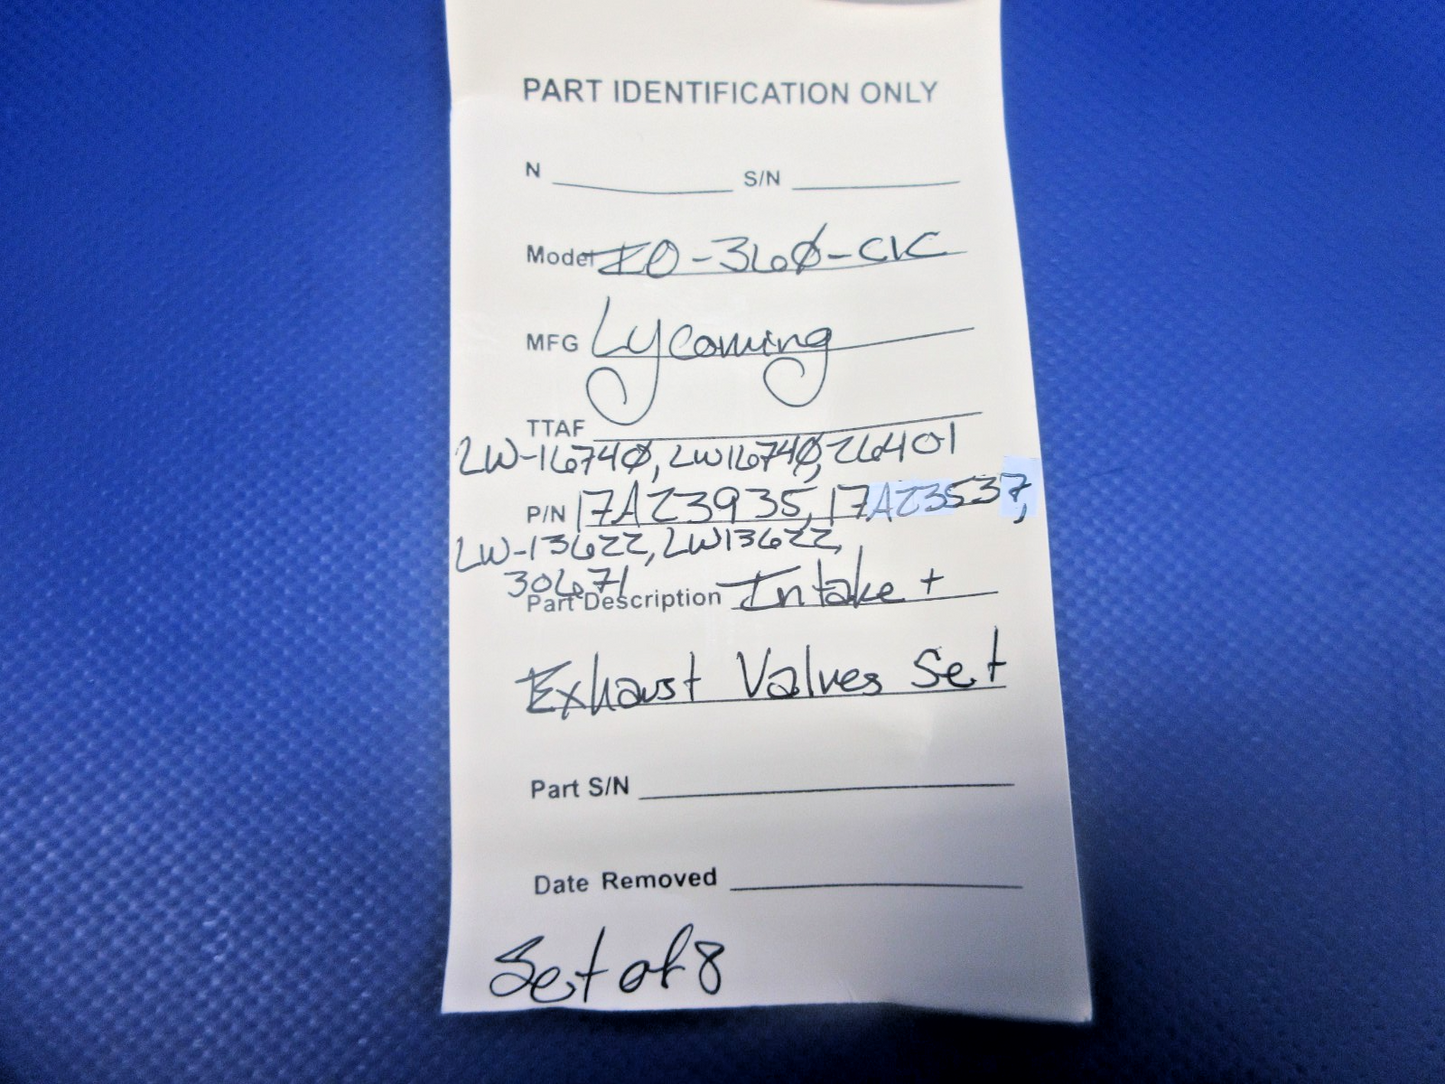 PART IDENTIFICATION ONLY
N S/N
Model IO-360-C1C
MFG Lycoming
TTAF
LW-16740, LW16740, 26401
P/N 17A23935, 17A23537,
LW-13622, LW13622,
30671
Part Description Intake +
Exhaust Valves Set
Part S/N
Date Removed
Set of 8